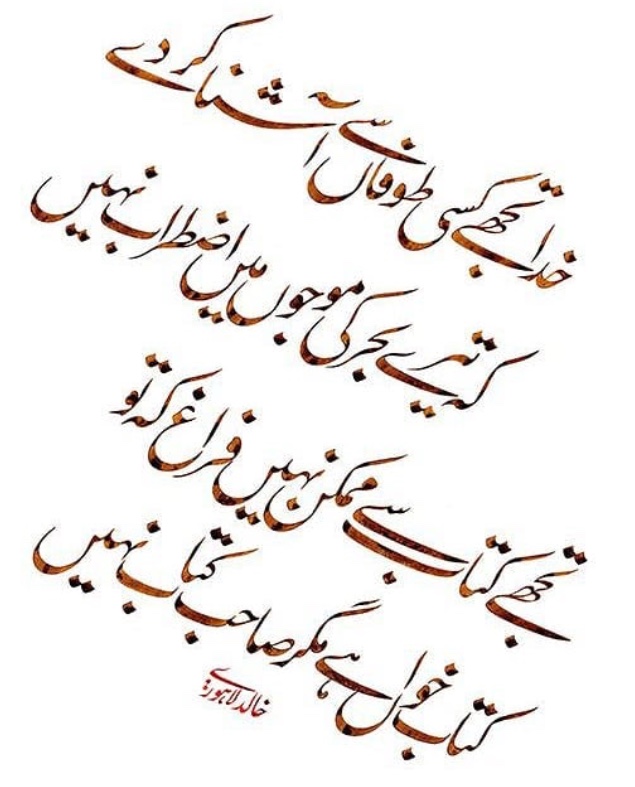 خدا تجھے کسی طوفاں سے آشنا کر دے
کہ تیرے بحر کی موجوں میں اضطراب نہیں
تجھے کتاب سے ممکن نہیں فراغ کہ تو
کتاب خواں ہے مگر صاحب کتاب نہیں
خالد لاہوری